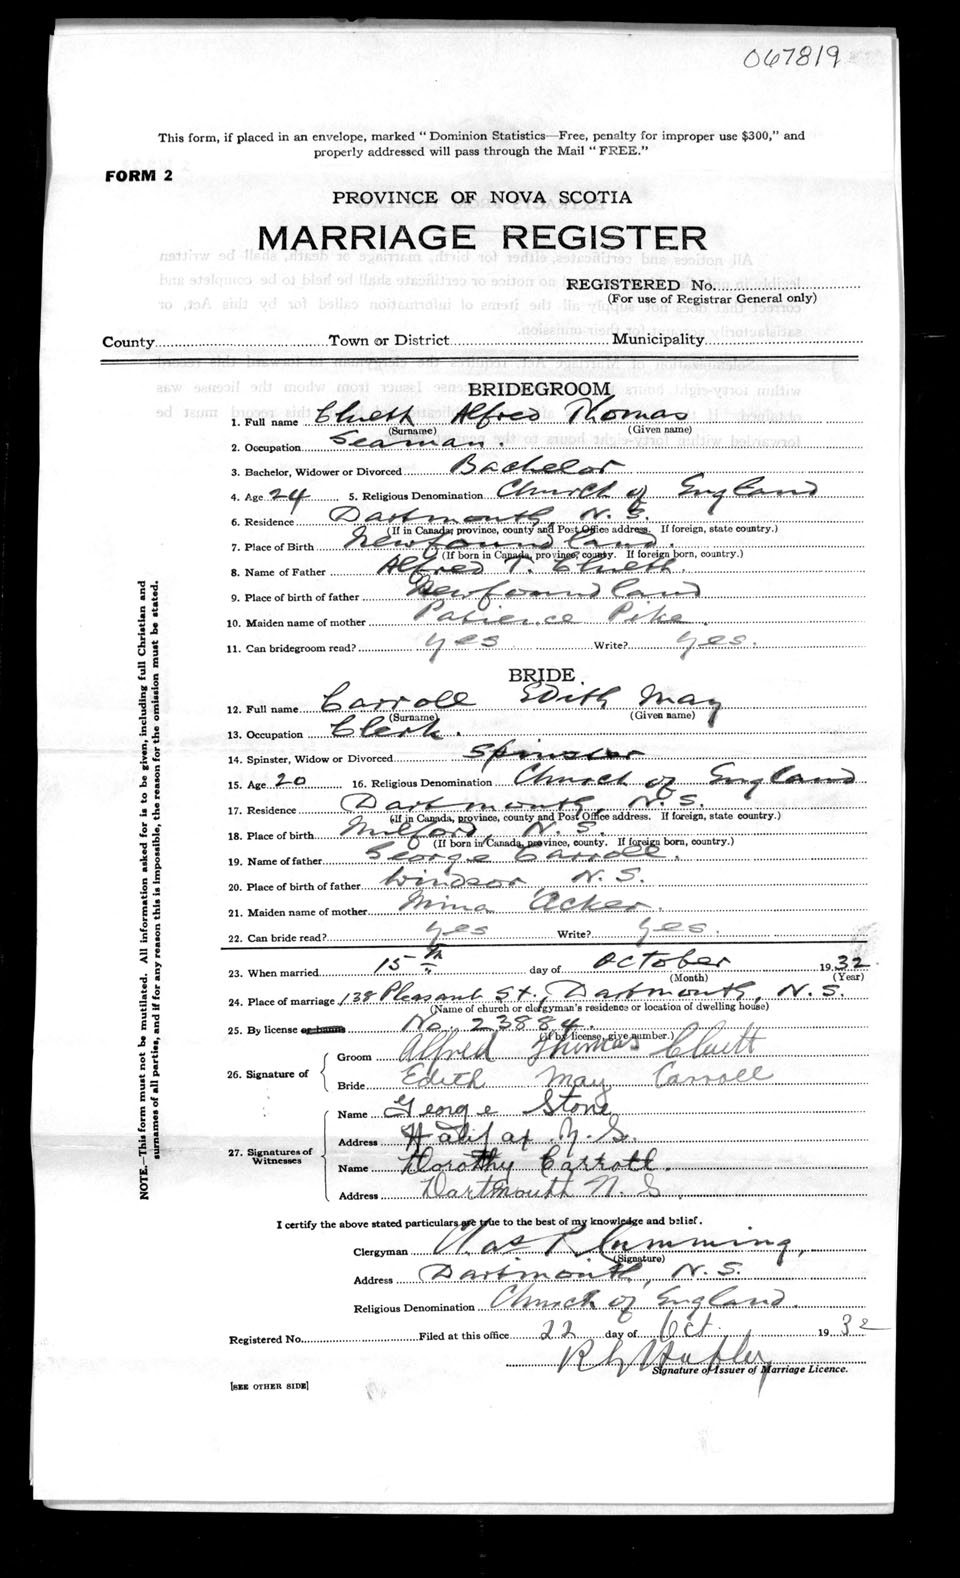 067819
This form, if placed in an envelope, marked "Dominion Statistics—Free, penalty for improper use $300," and
properly addressed will pass through the Mail "FREE."
FORM 2
PROVINCE OF NOVA SCOTIA
MARRIAGE REGISTER
REGISTERED No.
(For use of Registrar General only)
County Town or District Municipality
BRIDEGROOM
1. Full name Cluett Alfred Thomas
(Surname) (Given name)
2. Occupation Seaman.
3. Bachelor, Widower or Divorced Bachelor
4. Age 24 5. Religious Denomination Church of England
6. Residence Dartmouth N.S.
(If in Canada, province, county and Post Office address. If foreign, state country.)
7. Place of Birth Newfoundland.
(If born in Canada, province, county. If foreign born, country.)
8. Name of Father Alfred T. Cluett.
9. Place of birth of father Newfoundland
10. Maiden name of mother Patience Pike.
11. Can bridegroom read? yes Write? yes.
BRIDE
12. Full name Carroll Edith May
(Surname) (Given name)
13. Occupation Clerk.
14. Spinster, Widow or Divorced Spinster
15. Age 20 16. Religious Denomination Church of England
17. Residence Dartmouth, N.S.
(If in Canada, province, county and Post Office address. If foreign, state country.)
18. Place of birth Milford, N.S.
(If born in Canada, province, county. If foreign born, country.)
19. Name of father George Carroll.
20. Place of birth of father Windsor N.S.
21. Maiden name of mother Mina Acker.
22. Can bride read? yes Write? yes.
23. When married 15th day of October 1932
(Month) (Year)
24. Place of marriage 138 Pleasant St., Dartmouth, N.S.
(Name of church or clergyman's residence or location of dwelling house)
25. By license or banns No. 23884.
(If by license, give number.)
26. Signature of
Groom Alfred Thomas Cluett
Bride Edith May Carroll
27. Signatures of Witnesses
Name George Stone
Address Halifax N.S.
Name Dorothy Carroll.
Address Dartmouth N.S.
I certify the above stated particulars are true to the best of my knowledge and belief.
Clergyman Chas R Cumming,
(Signature)
Address Dartmouth, N.S.
Religious Denomination Church of England.
Registered No. Filed at this office 22 day of Oct. 1932
Signature of Issuer of Marriage Licence.
[SEE OTHER SIDE]
NOTE.—This form must not be mutilated. All information asked for is to be given, including full Christian and
surnames of all parties, and if for any reason this is impossible, the reason for the omission must be stated.